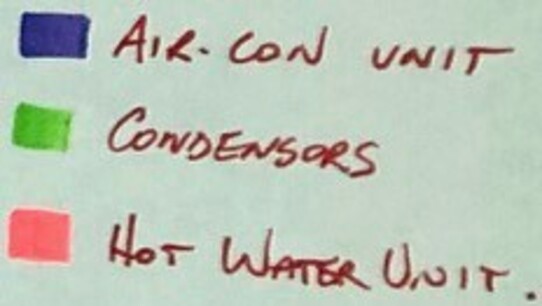 AIR-CON UNIT
CONDENSORS
HOT WATER UNIT.